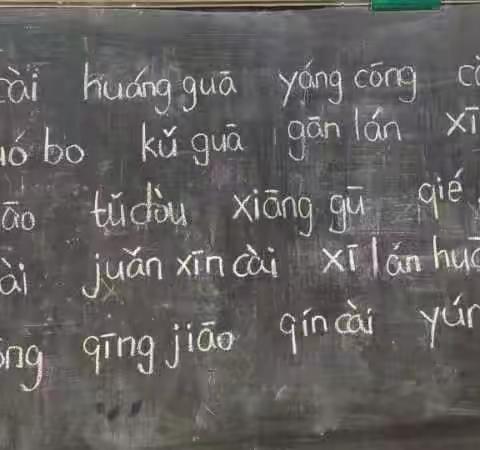 cài huáng guā yáng cōng
bo kǔ guā gān lán xī
āo tǔ dòu xiāng gū qié
ài juǎn xīn cài xī lán hu
ng qīng jiāo qín cài yún